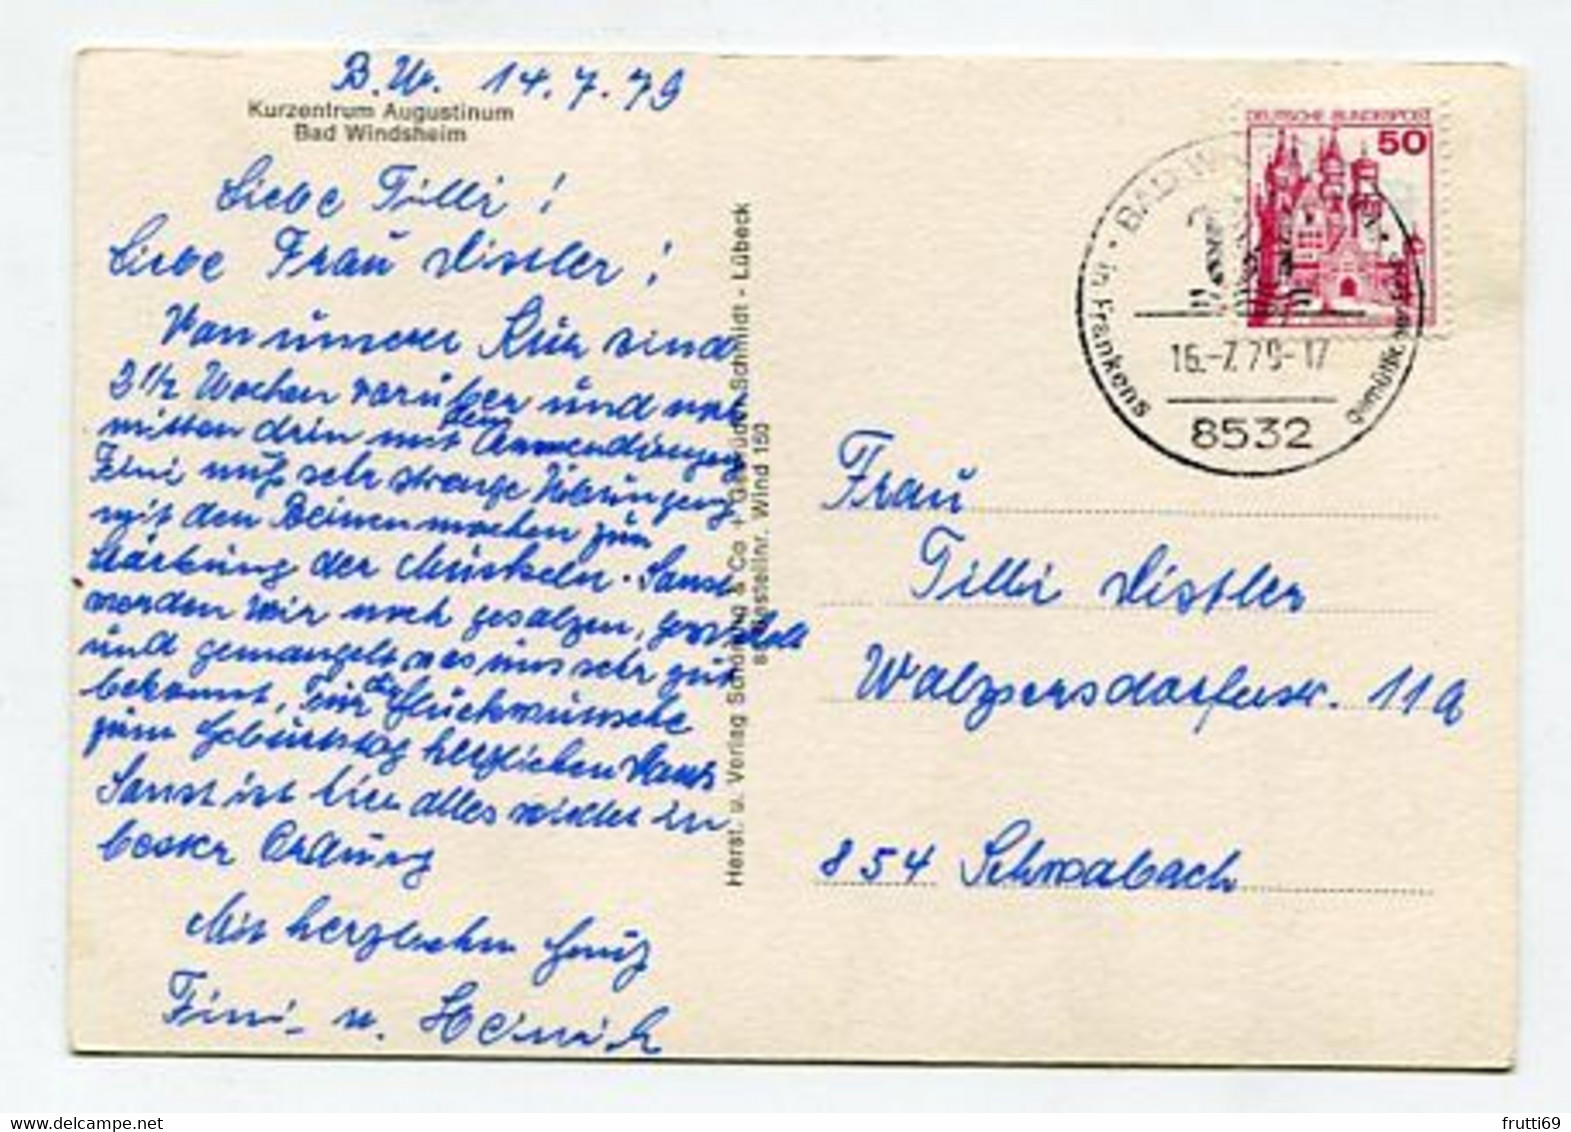 B.W. 14.7.79
Kurzentrum Augustinum
Bad Windsheim
Liebe Tilli!
Liebe Frau Distler!
Von unserer Kur sind
2 1/2 Wochen vorüber und
mitten drin mit den Anwendungen
Fini muß sehr strenge Übungen
mit den Beinen machen zur
Stärkung der Muskeln. Sonst
werden wir noch gesalzen,
und gemangelt was uns sehr gut
bekommt, Für die Glückwünsche
zum Geburtstag herzlichen Dank
Sonst ist hier alles wieder in
bester Ordnung
Mit herzlichem Gruß
Fini u. Heinrich
Herst. u. Verlag Schöning & Co + Gebrüder Schmidt - Lübeck
Bestellnr. Wind 150
DEUTSCHE BUNDESPOST
50
BAD
in Frankens
16.-7.79-17
8532
Frau
Tilli Distler
Walpersdorferstr. 11a
854 Schwabach
frutti69